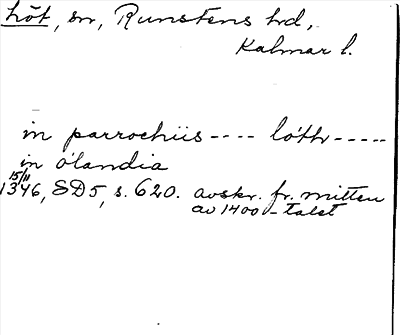 Löt, sn, Runstens hd,
Kalmar l.
in parrochiis ---- lóthr -----
in ólandia
15/11
1346, SD5, s. 620. avskr. fr. mitten
av 1400-talet